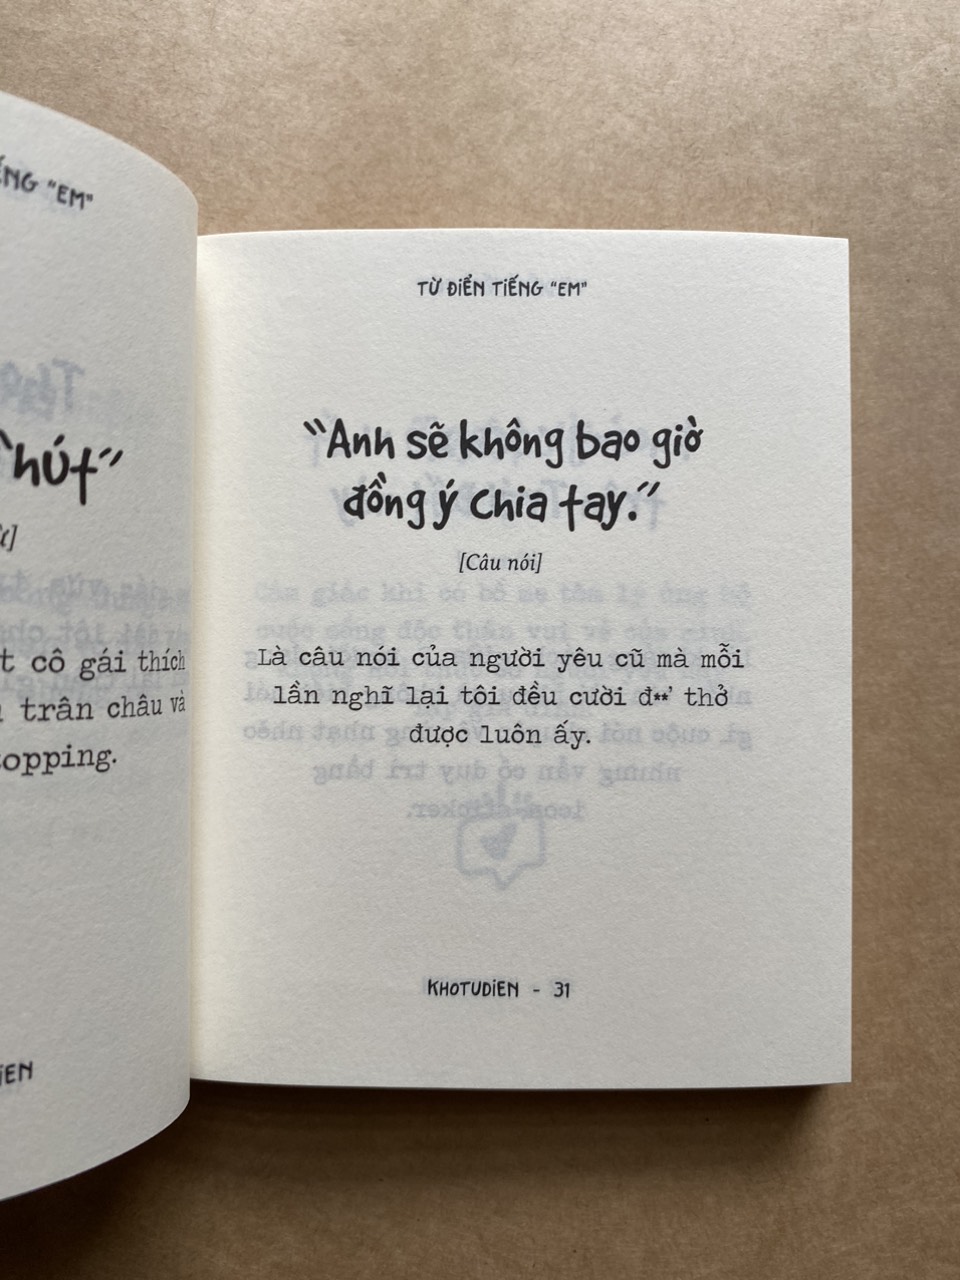 TIẾNG "EM"
"hút"
cô gái thích
trân châu và
topping.
TỪ ĐIỂN TIẾNG "EM"
"Anh sẽ không bao giờ
đồng ý chia tay."
[Câu nói]
Là câu nói của người yêu cũ mà mỗi
lần nghĩ lại tôi đều cười đ**' thở
được luôn ấy.
KHOTUDIEN - 31